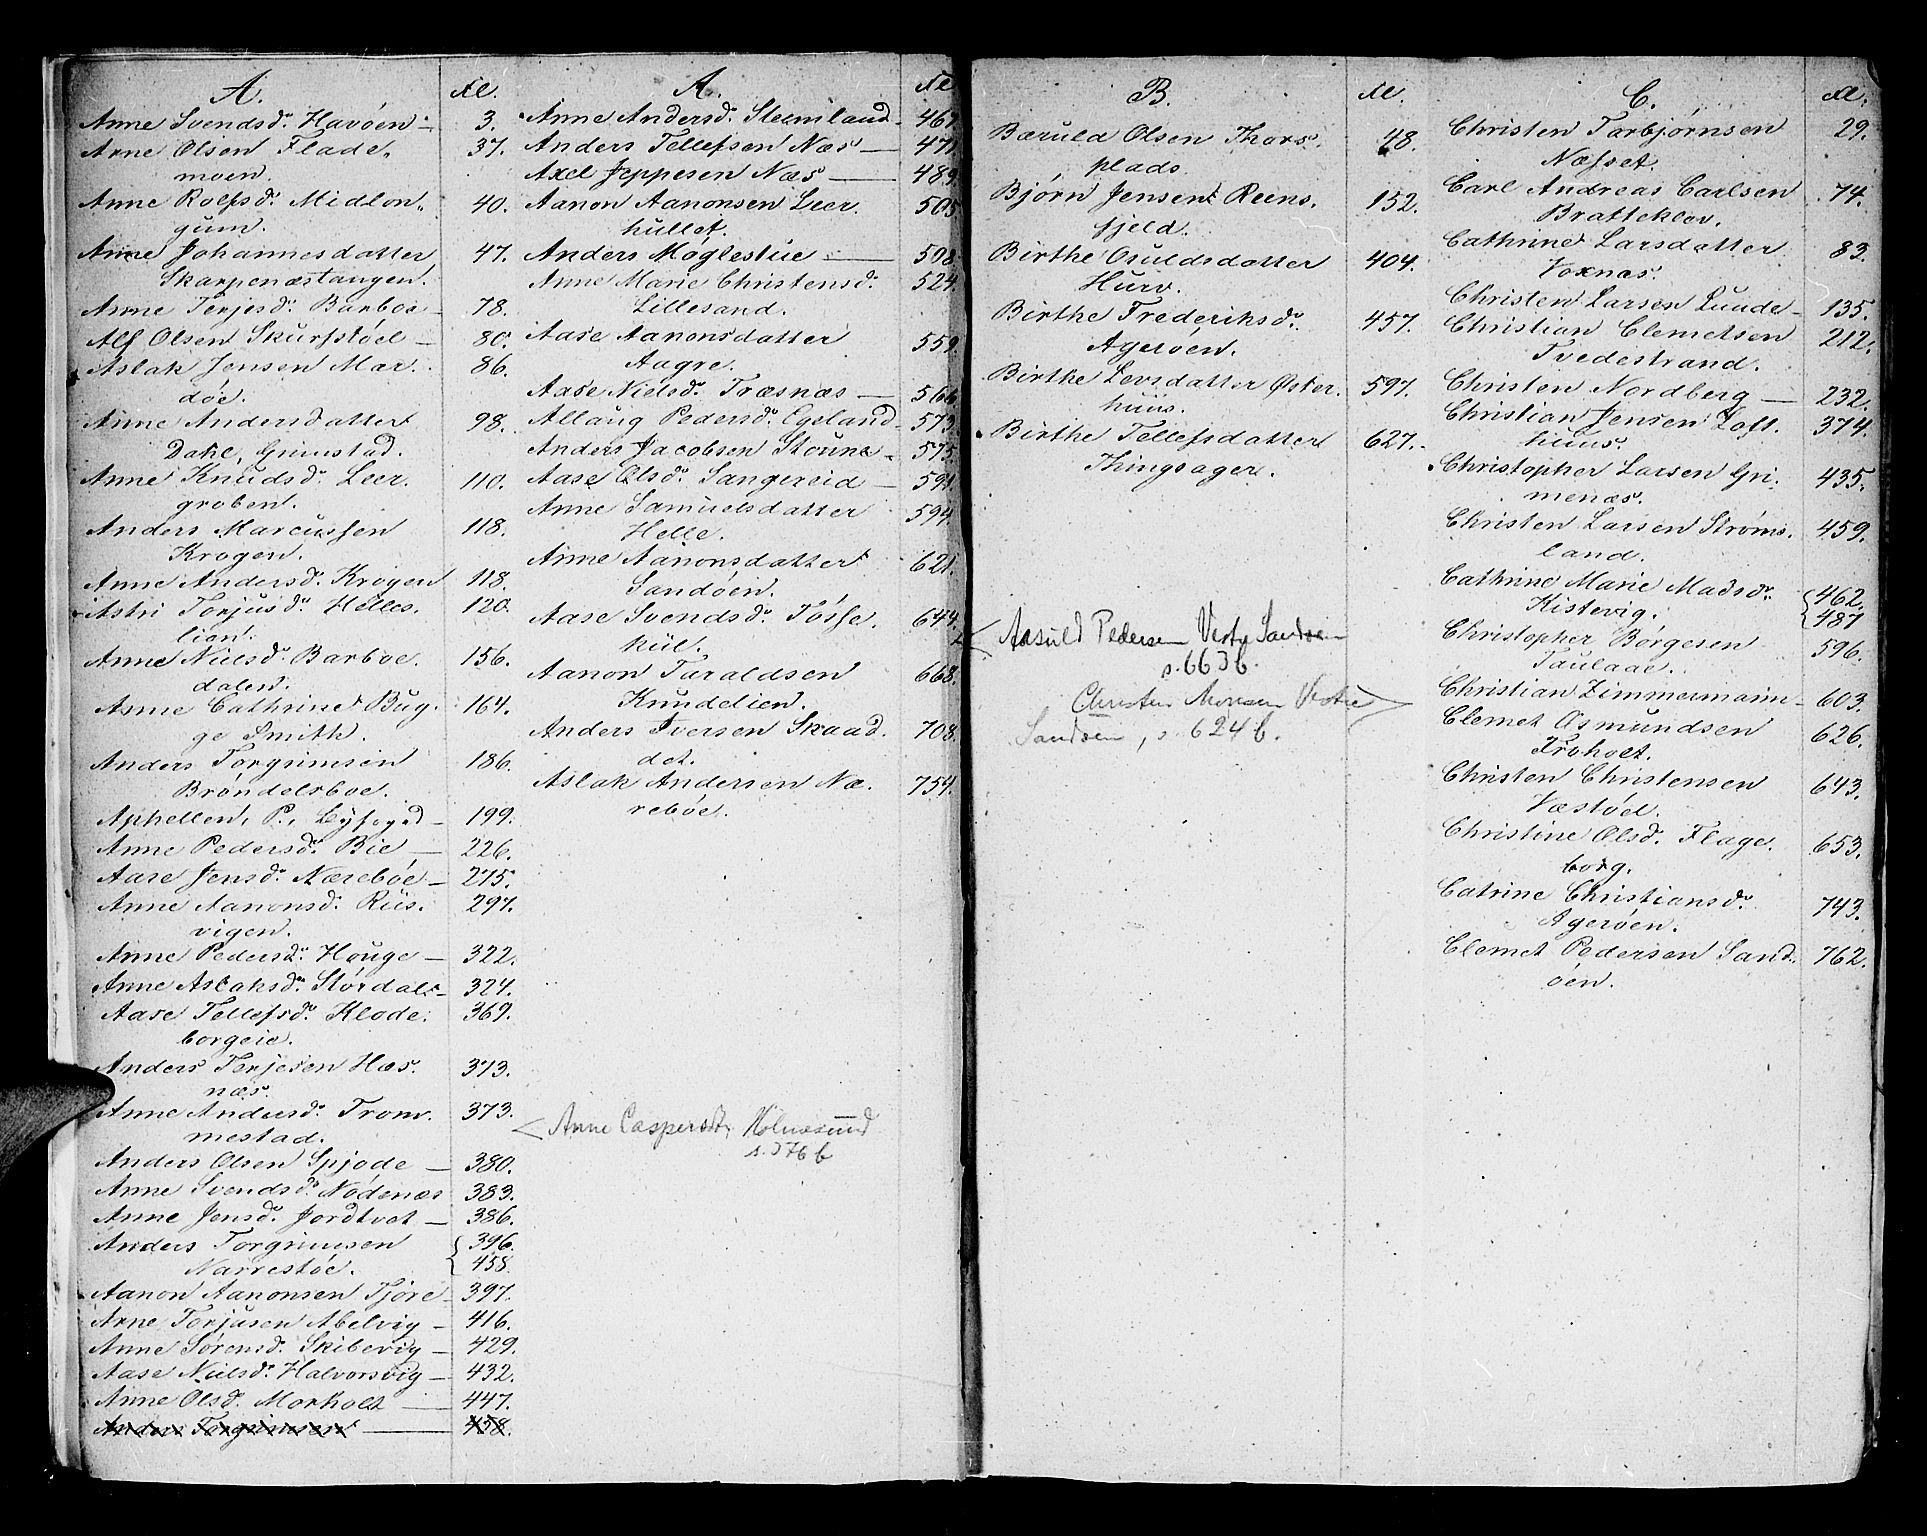 A.
Anne Svendsdr. Havöen — 3.
Arne Olsen Flade- 37.
moen.
Anne Rolfsdr. Midlon- 40.
gum.
Anne Johannesdatter 47.
Skarpenæstangen.
Anne Terjesdr. Barboe — 78.
Alf Olsen Skurfstöel — 80.
Aslak Jensen Mar- 86.
döe.
Anne Andersdatter 98.
Dahe, Grimstad.
Anne Knudsdr. Leer- 110.
groben.
Anders Marcussen 118.
Krogen.
Anne Andersdr. Krogen 118.
Astri Torjusdr. Helles- 120.
lien.
Anne Nielsdr. Barboe- 156.
dalen.
Anne Cathrine Bug- 164.
ge Smith.
Anders Torgrimsen 186.
Bröndelsboe.
Aphellen, P., Byfoged — 199.
Anne Pedersdr. Bie — 226.
Aase Jensdr. Næreböe — 275.
Anne Aanonsdr. Rus- 297.
vigen.
Anne Pedersdr. Houge — 322.
Anne Aslaksdr. Stördale — 324.
Aase Tellefsdr. Klode- 369.
borgeie.
Anders Terjesen Hæs- 373.
næs.
Anne Andersdr. Trom- 373.
mestad.
Anders Olsen Spjode — 380.
Anne Svendsdr. Nödenæs 383.
Anne Jensdr. Jordtvet — 386.
Anders Torgrimsen { 396.
Narrestöe. 458.
Aanon Aanonsen Tjöre — 397.
Arne Torjusen Abelvig — 416.
Anne Sörensdr. Skibevig — 429.
Aase Nielsdr. Halvorsvig — 432.
Anne Olsdr. Morholt — 447.
Anders Torgrimsen — 458.
A.
Anne Andersdr. Steensland — 467.
Anders Tellefsen Næs — 471.
Axel Jeppesen Næs — 489.
Aanon Aanonsen Leer- 505.
hullet.
Anders Möglestue — 508.
Anne Marie Christensdr. 524.
Lillesand.
Aase Aanonsdatter 559.
Aagre.
Aase Nielsdr. Træsnæs — 566
Allaug Pedersdr. Egeland — 573.
Anders Jacobsen Stoune — 575.
Aase Olsdr. Sangereid — 591.
Anne Samuelsdatter 594.
Helle.
Anne Aanonsdatter 621.
Sandöen.
Aase Svendsdr. Fosse- 644.
hül.
Aanon Taraldsen 668.
Knudelien.
Anders Iversen Skaad- 708.
det.
Aslak Andersen Næ- 754.
reböe.
Anne Caspersdtr. Holmesund
s. 376 b
B.
Baruld Olsen Thors- 48.
plads.
Björn Jensen Reens- 152.
fjeld.
Birthe Osuldsdatter 404.
Hurv.
Birthe Frederiksdr. 457.
Ageröen.
Birthe Levsdatter Öster- 597.
huus.
Birthe Tellefsdatter 627.
Thingsager.
Aasuld Pedersen Vestre Sandøen
s. 663 b.
Christen Monsen Vestre
Sandøen, s. 624 b.
C.
Christen Tarbjørnsen 29.
Næsset.
Carl Andreas Carlsen 74.
Bratteklev.
Cathrine Larsdatter 83.
Voxnæs.
Christen Larsen Lunde — 135.
Christian Clemetsen 212.
Tvedestrand.
Christen Nordberg — 232.
Christian Jensen Loft- 374.
huus.
Christopher Larsen Gri- 435.
menæs.
Christen Larsen Ströms- 459.
land.
Cathrine Marie Madsdr. { 462.
Kistevig. 487
Christopher Börgesen 596.
Taulaae.
Christian Zimmermann — 603.
Clemet Osmundsen 626.
Froholt.
Christen Christensen 643.
Væstöel.
Christine Olsdr. Flage- 653.
borg.
Catrine Christiansdr. 743.
Ageröen.
Clemet Pedersen Sand- 762.
öen.